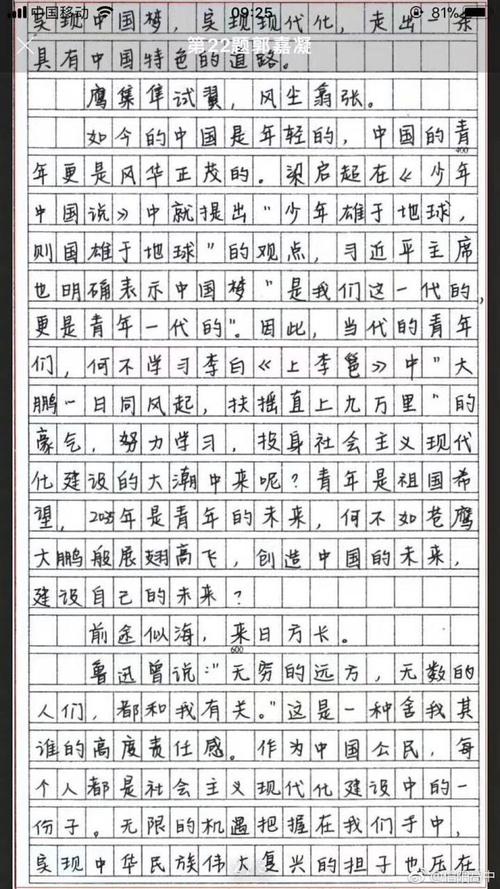 中国移动 09:25 81%
实现中国梦，实现现代化，走出一条
第22题郭嘉凝
具有中国特色的道路。
鹰隼试翼，风尘翕张。
如今的中国是年轻的，中国的青
400
年更是风华正茂的。梁启超在《少年
中国说》中就提出"少年雄于地球，
则国雄于地球"的观点，习近平主席
也明确表示中国梦"是我们这一代的，
更是青年一代的"。因此，当代的青年
们，何不学习李白《上李邕》中"大
鹏一日同风起，扶摇直上九万里"的
豪气，努力学习，投身社会主义现代
化建设的大潮中来呢？青年是祖国希
望，2035年是青年的未来，何不如苍鹰
大鹏般展翅高飞，创造中国的未来，
建设自己的未来？
前途似海，来日方长。
600
鲁迅曾说："无穷的远方，无数的
人们，都和我有关。"这是一种舍我其
谁的高度责任感。作为中国公民，每
个人都是社会主义现代化建设中的一
份子。无限的机遇把握在我们手中，
实现中华民族伟大复兴的担子也压在